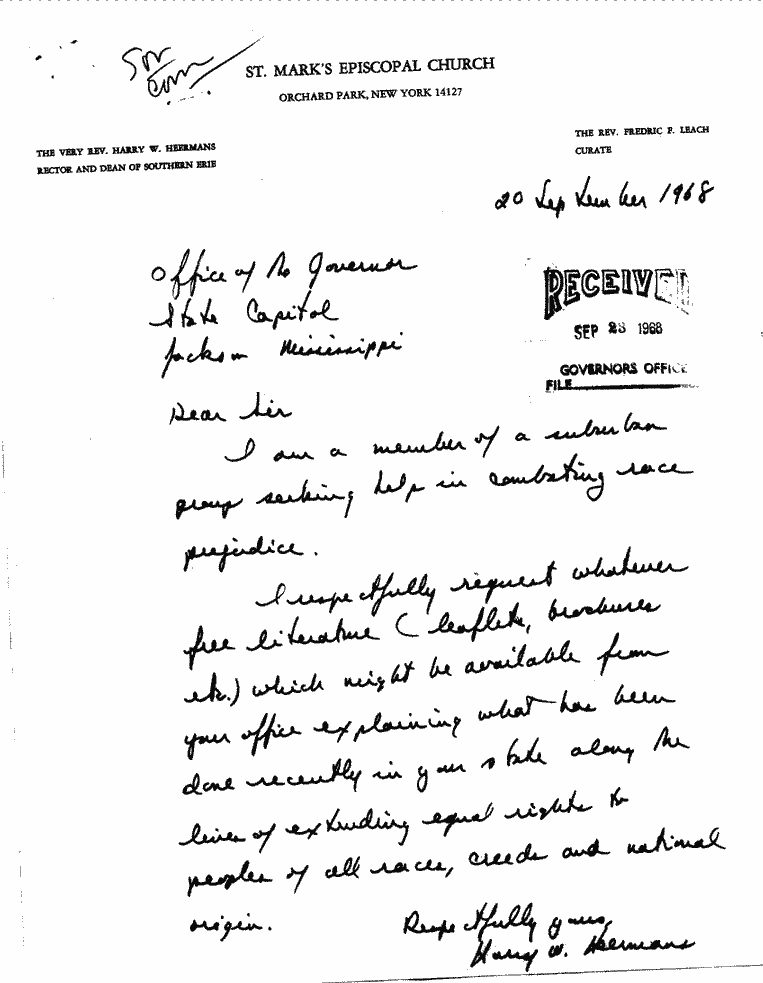 Sov
Com
ST. MARK'S EPISCOPAL CHURCH
ORCHARD PARK, NEW YORK 14127
THE VERY REV. HARRY W. HEERMANS
RECTOR AND DEAN OF SOUTHERN ERIE
THE REV. FREDRIC F. LEACH
CURATE
20 September 1968
Office of the Governor
State Capitol
Jackson Mississippi
RECEIVED
SEP 23 1968
GOVERNORS OFFICE
FILE
Dear Sir
I am a member of a suburban
group seeking help in combating race
prejudice.
I respectfully request whatever
free literature (leaflets, brochures
etc.) which might be available from
your office explaining what has been
done recently in your state along the
lines of extending equal rights to
peoples of all races, creeds and national
origin.
Respectfully yours,
Harry W. Heermans